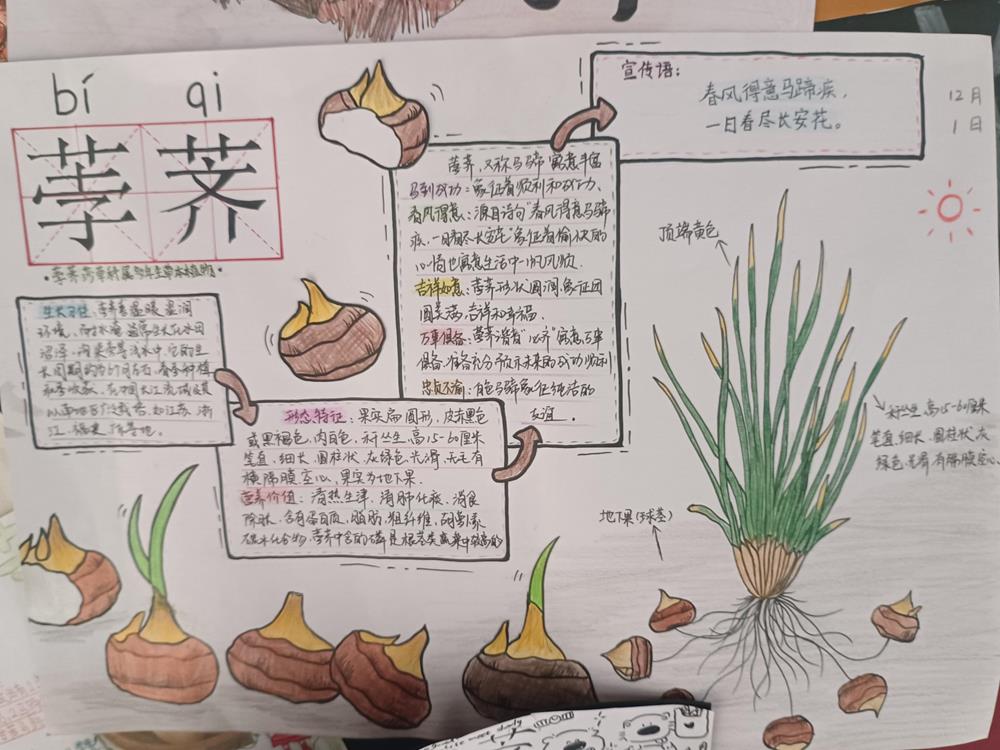 bí qi
荸荠
•荸荠莎草科属多年生草本植物•
宣传语:
春风得意马蹄疾,
一日看尽长安花。
12月
1日
荸荠,又称马蹄 寓意丰富
马到成功:象征着顺利和成功、
春风得意:源自诗句"春风得意马蹄
疾,一日看尽长安花"象征着愉快的
心情也寓意生活中一帆风顺
吉祥如意:荸荠形状圆润,象征团
圆美满,吉祥和幸福.
万事俱备:荸荠谐音"必齐"寓意万事
俱备,准备充分预示未来的成功顺利
忠贞不渝:白色马蹄象征纯洁的
友谊.
生长习性:荸荠喜温暖,湿润
环境、
沼泽、
长周期约为
江、福建
形态特征:果实扁圆形,皮赤黑色
或黑褐色,肉白色,秆丛生,高15-60厘米
笔直,细长,圆柱状,灰绿色,光滑,无毛有
横隔膜空心,果实为地下果.
营养价值:清热生津,清肺化痰,消食
除胀、含有蛋白质,脂肪,粗纤维,胡萝卜素
碳水化合物,荸荠中含的磷是根茎类蔬菜中较高的
顶端黄色
秆丛生,高15-60厘米
笔直,细长,圆柱状,灰
绿色,光滑,有隔膜空心
地下果(球茎)